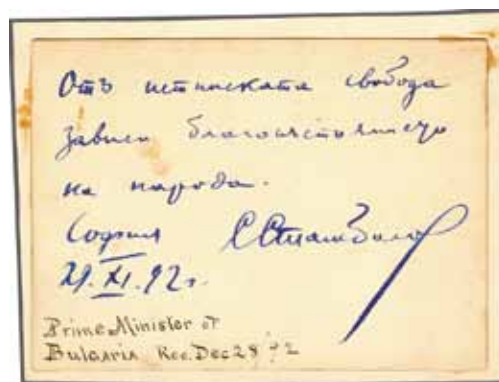 Отъ истинската свобода
зависи благосъстоянието
на народа.
София С Стамболов
29.XI.92 г.
Prime Minister of
Bulgaria Rec. Dec 28 92